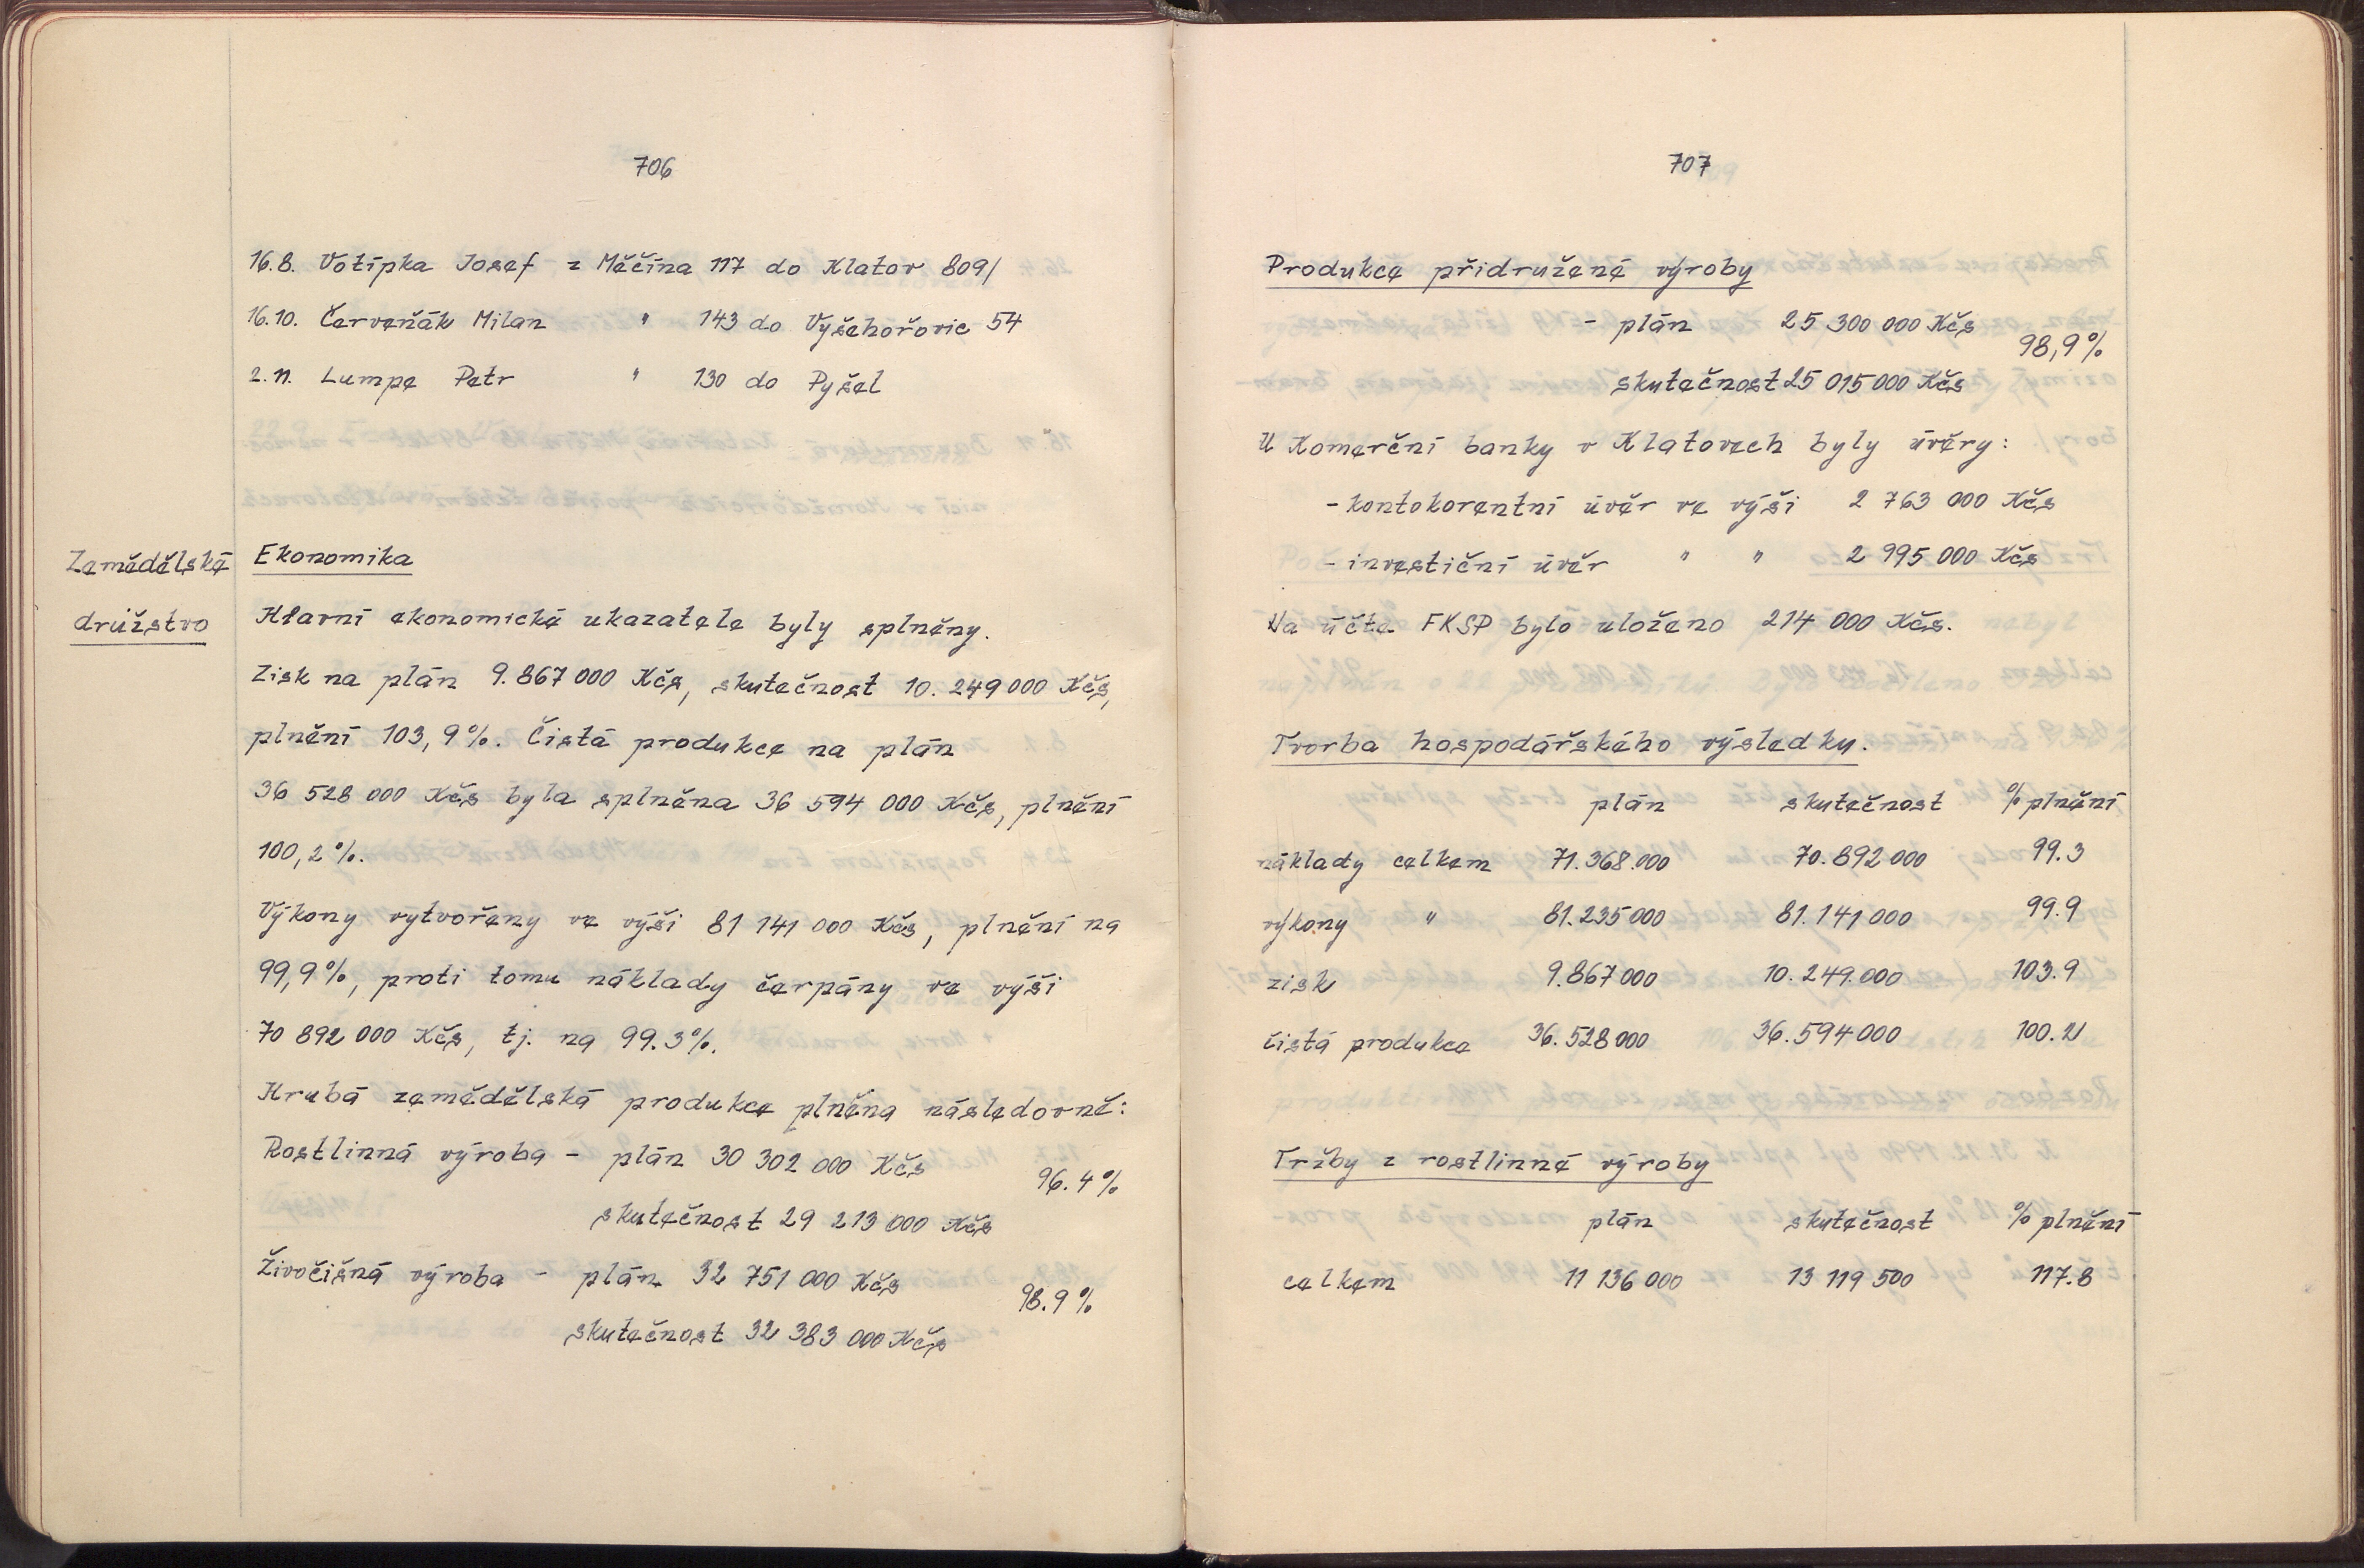 706
16.8. Votípka Josef z Měčína 117 do Klatov 809/
16.10. Červeňák Milan " 143 do Vyšehořovic 54
2.11. Lumpe Petr " 130 do Pyšel
Zemědělské
družstvo
Ekonomika
Hlavní ekonomické ukazatele byly splněny.
Zisk na plán 9.867 000 Kčs, skutečnost 10. 249 000 Kčs,
plnění 103,9%. Čistá produkce na plán
36 528 000 Kčs byla splněna 36 594 000 Kčs, plnění
100,2%.
Výkony vytvořeny ve výši 81 141 000 Kčs, plnění na
99,9%, proti tomu náklady čerpány ve výši
70 892 000 Kčs, tj. na 99.3%.
Hrubá zemědělská produkce plněna následovně:
Rostlinná výroba - plán 30 302 000 Kčs
96.4%
skutečnost 29 213 000 Kčs
Živočišná výroba - plán 32 751 000 Kčs
98.9%
skutečnost 32 383 000 Kčs
707
Produkce přidružené výroby
- plán 25 300 000 Kčs
98,9%
skutečnost 25 015 000 Kčs
U Komerční banky v Klatovech byly úvěry:
- kontokorentní úvěr ve výši 2 763 000 Kčs
- investiční úvěr " " 2 995 000 Kčs
Na účte FKSP bylo uloženo 214 000 Kčs.
Tvorba hospodářského výsledku.
plán skutečnost % plnění
náklady celkem 71.368.000 70.892 000 99.3
výkony " 81.235 000 81.141 000 99.9
zisk 9.867 000 10. 249.000 103.9
čistá produkce 36. 528 000 36. 594 000 100.2
Tržby z rostlinné výroby
plán skutečnost % plnění
celkem 11 136 000 13 119 500 117.8